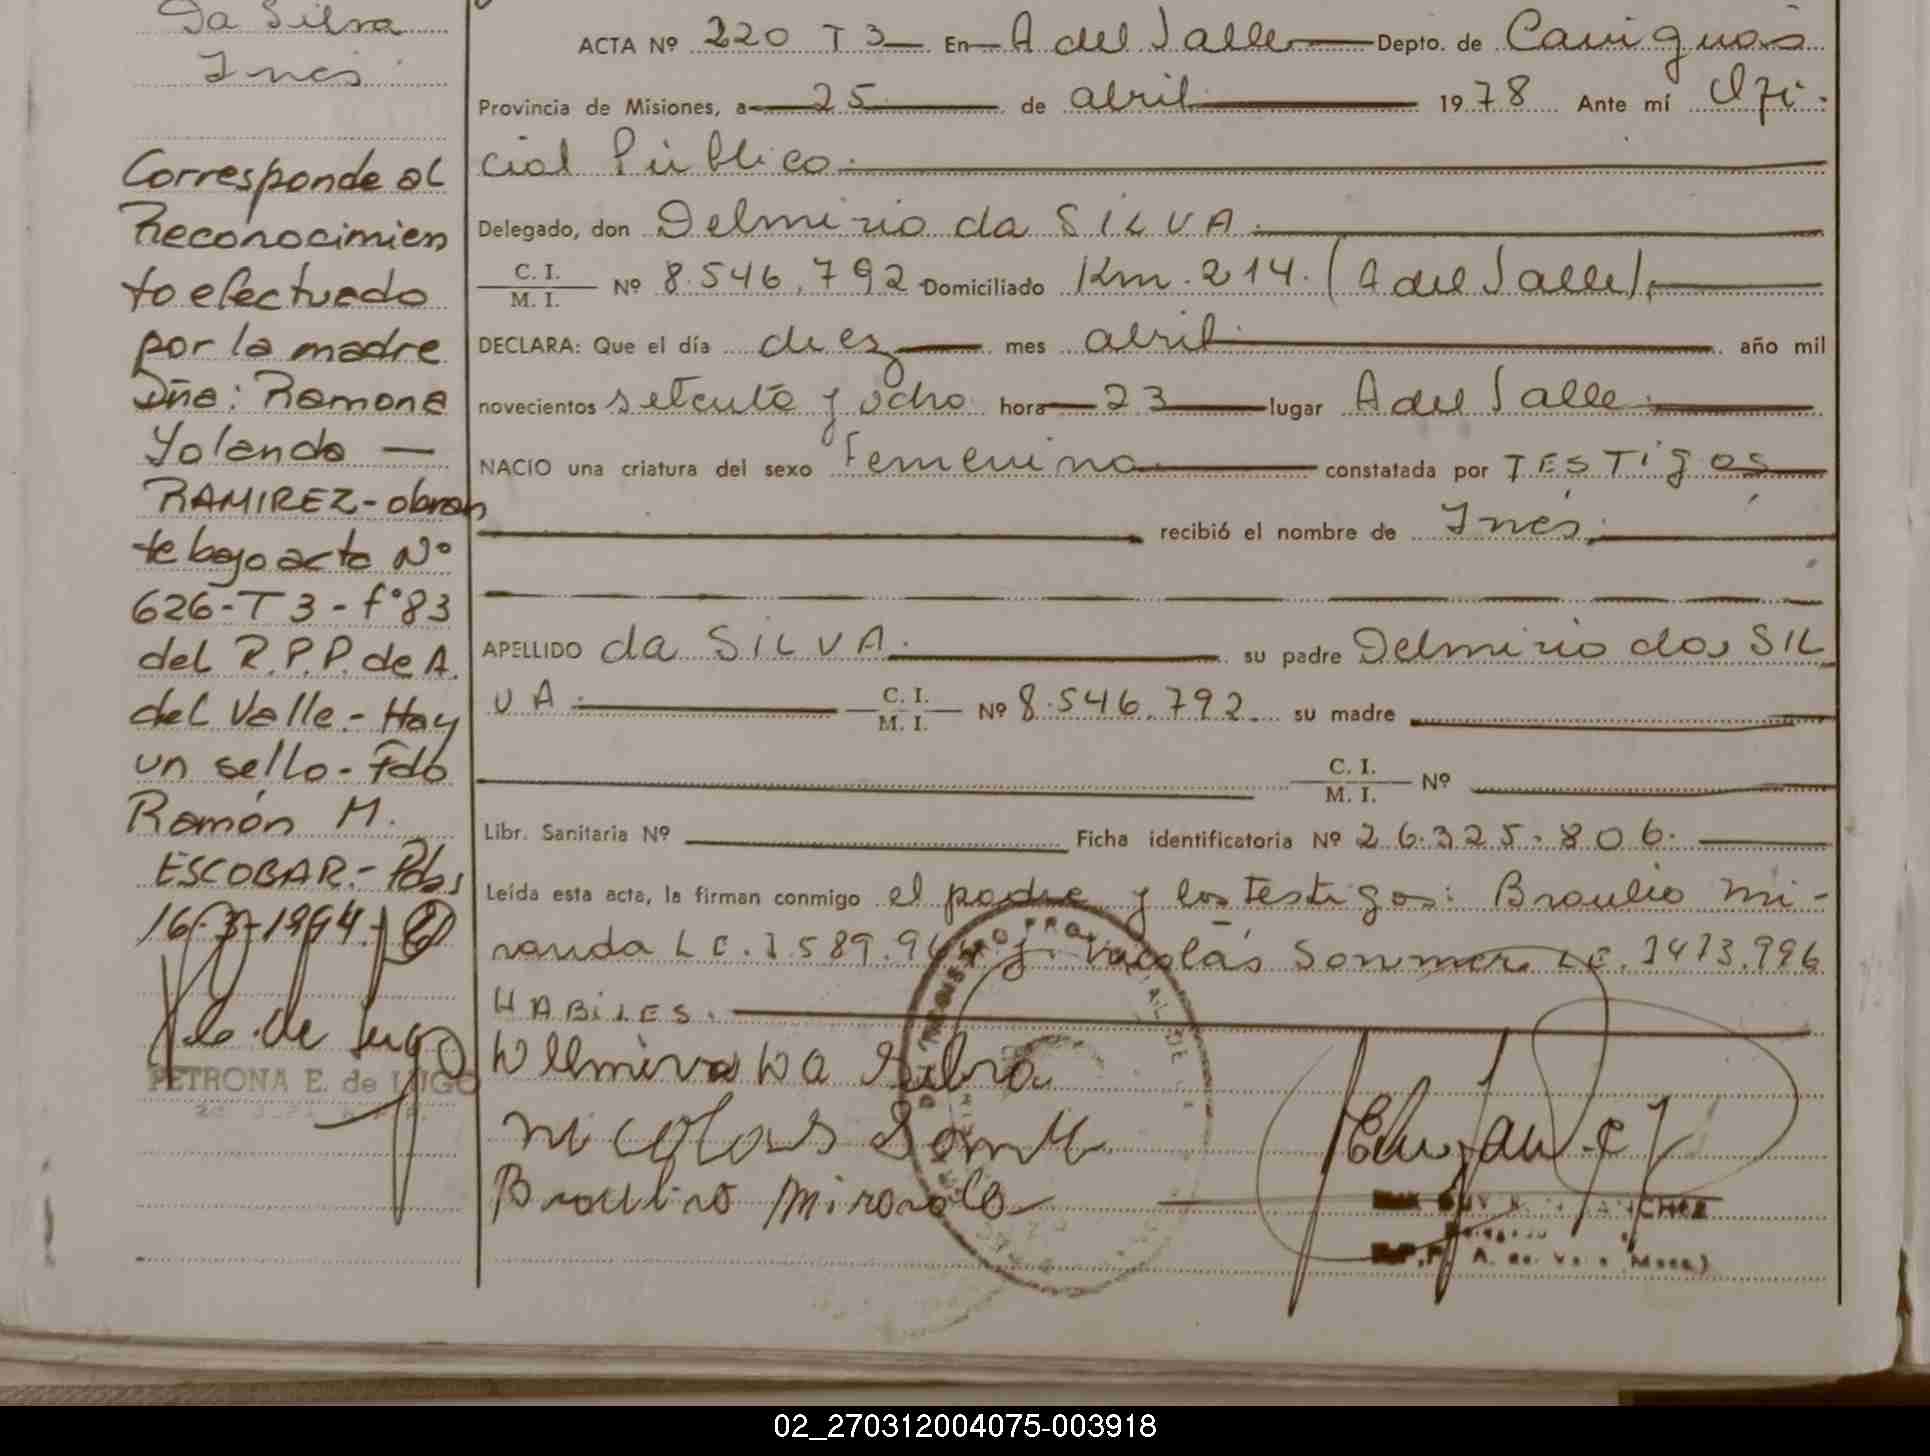 Da Silva
Inés
Corresponde al
Reconocimien
to efectuado
por la madre
Dña: Ramona
Yolanda —
RAMIREZ - obran
te bajo acta Nº
626-T3-fº83
del R.P.P. de A.
del Valle.- Hay
un sello - Fdo
Ramón M.
ESCOBAR.- Pdas
16-3-1994.-
PETRONA E. de LUGO
ACTA Nº 220 T3 En A del Valle Depto. de Cainguás
Provincia de Misiones, a 25 de abril 1978 Ante mí Ofi-
cial Público.
Delegado, don Delmirio da SILVA.
C. I. / M. I. Nº 8.546.792 Domiciliado Km. 214. (A del Valle).
DECLARA: Que el día diez mes abril año mil
novecientos setenta y ocho hora 23 lugar A del Valle
NACIO una criatura del sexo Femenino constatada por TESTigos
recibió el nombre de Inés.
APELLIDO da SILVA. su padre Delmirio da SIL
VA. C. I. / M. I. Nº 8.546.792. su madre
C. I. / M. I. Nº
Libr. Sanitaria Nº Ficha identificatoria Nº 26.325.806.
Leída esta acta, la firman conmigo el padre y los Testigos: Braulio Mi-
randa L E. 7.589.9 y Nicolás Sommer L E. 7473.996
HABILES.
Delmirio Da Silva
Nicolas
Braulino Miranda
02_270312004075-003918